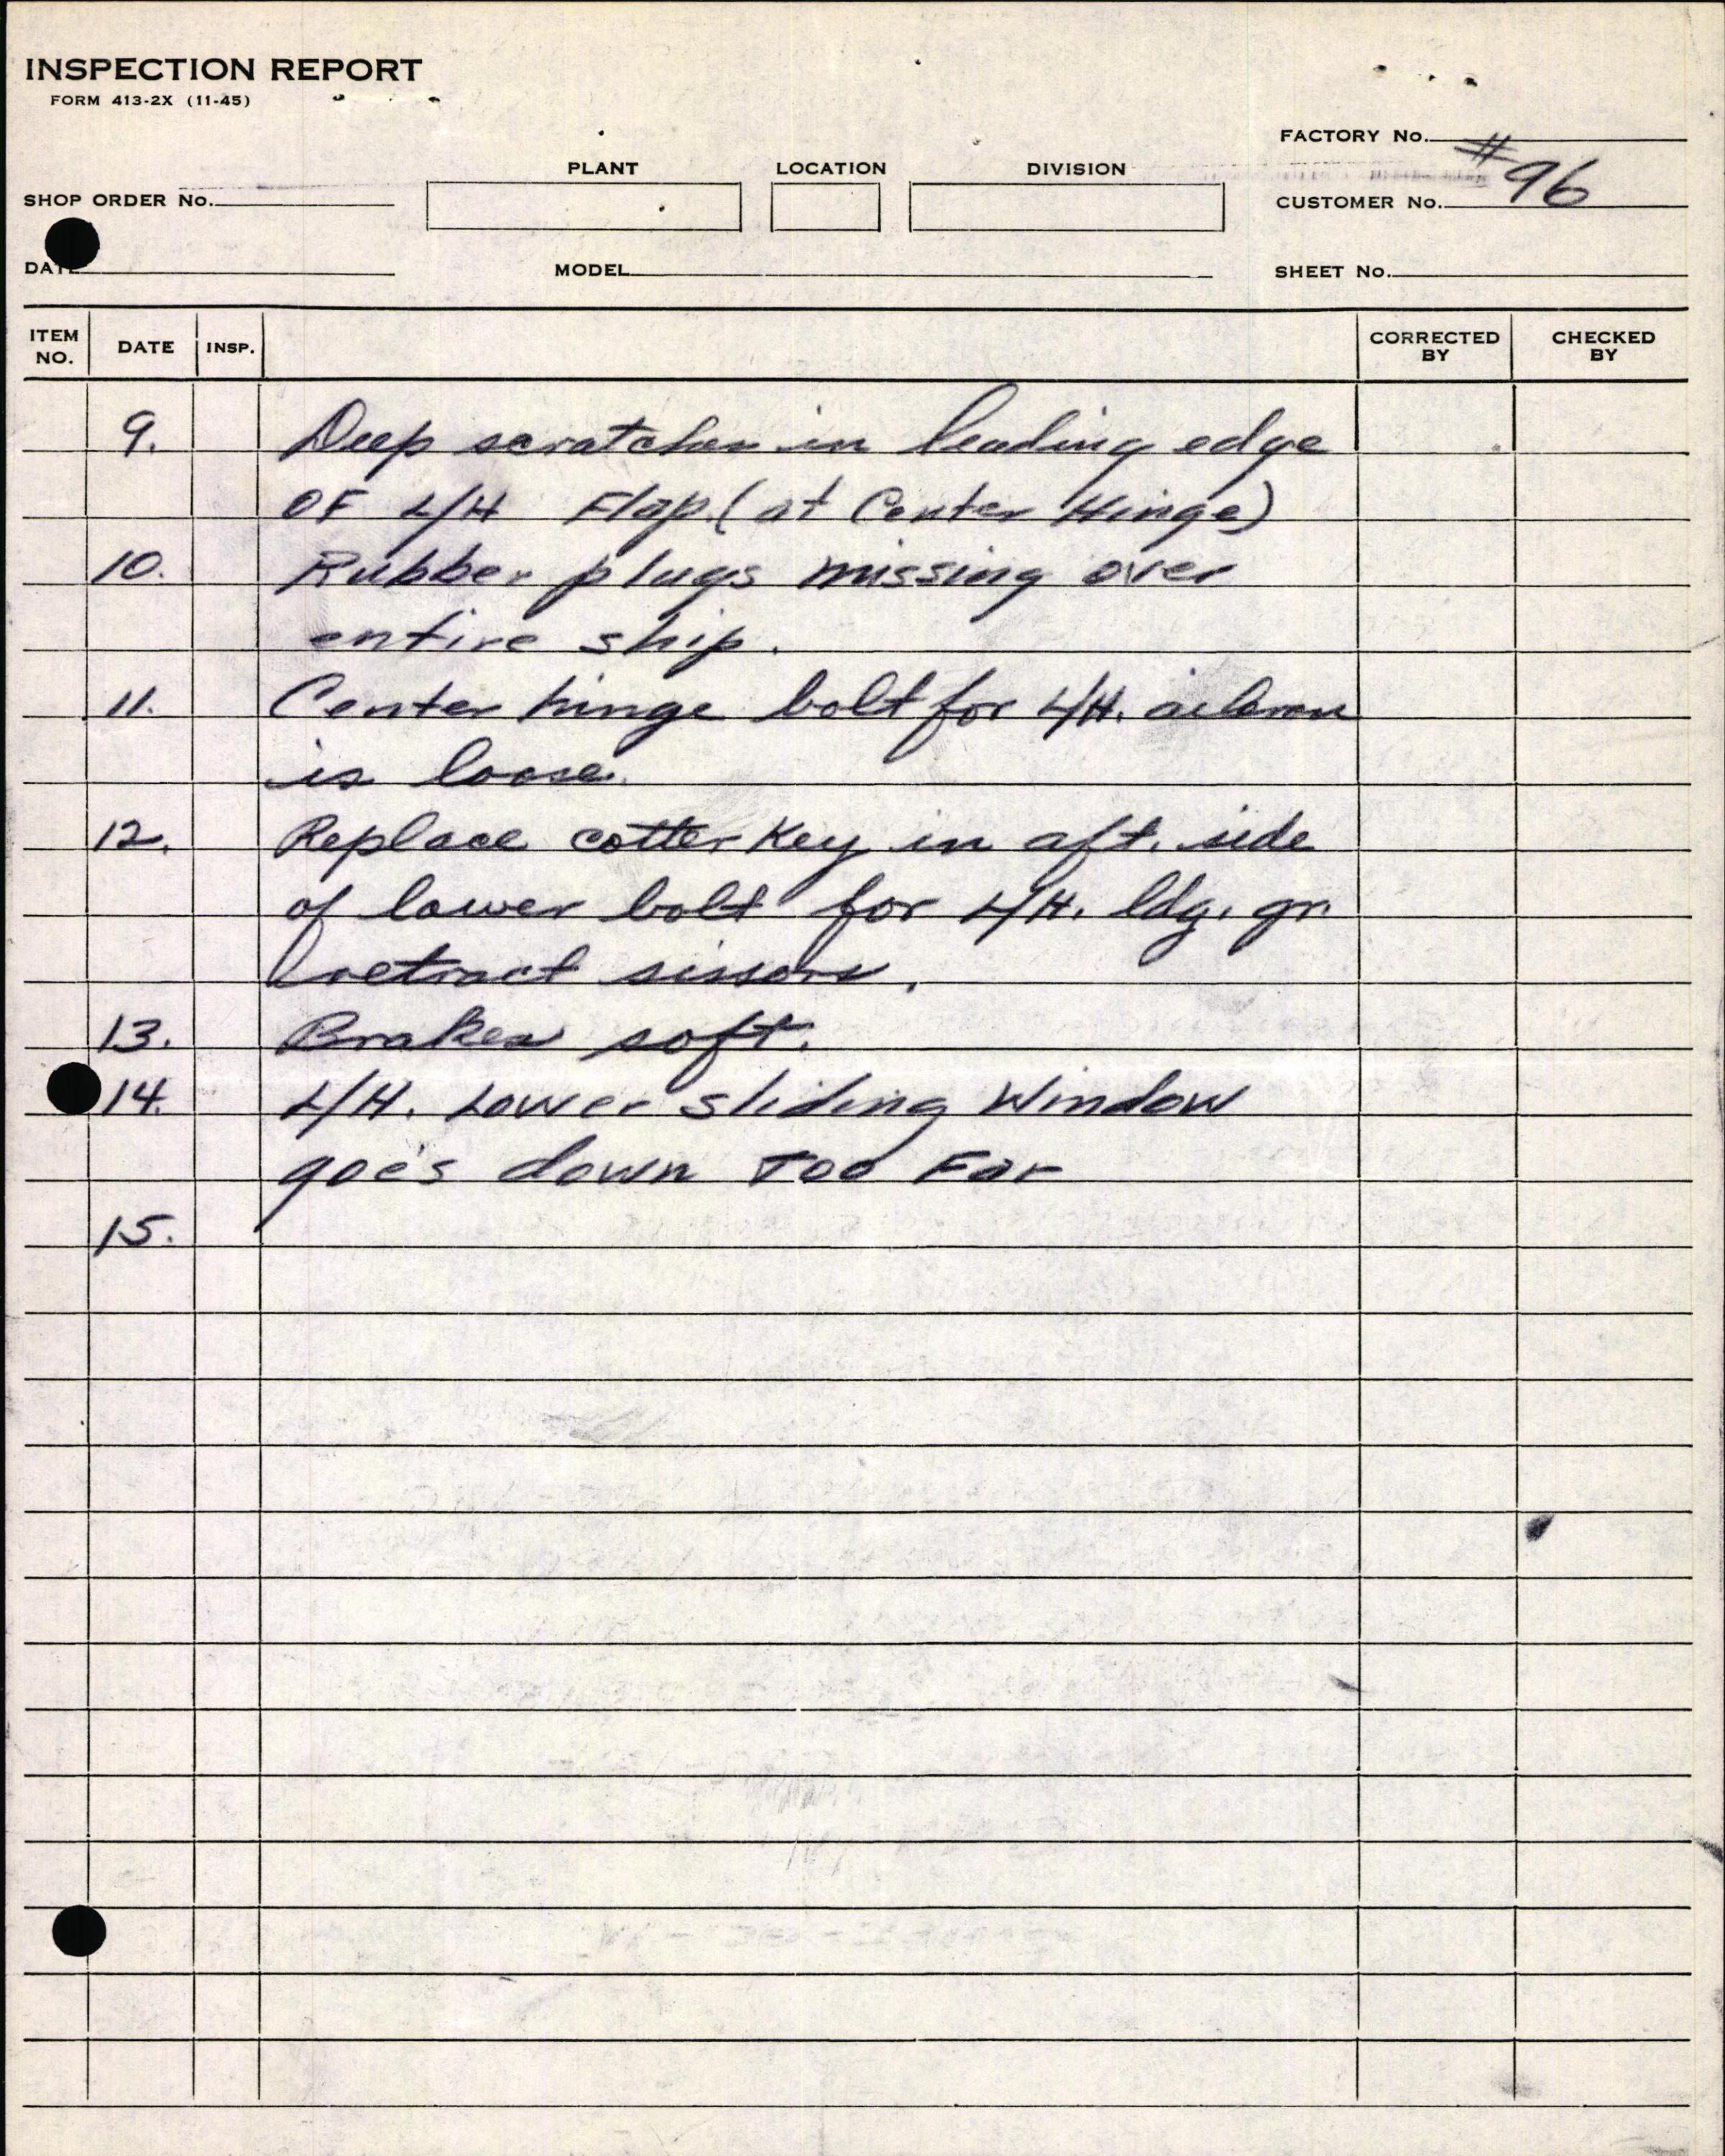 INSPECTION REPORT
FORM 413-2X (11-45)
FACTORY No.
PLANT LOCATION DIVISION
#96
SHOP ORDER No. CUSTOMER No.
DATE MODEL SHEET No.
ITEM NO. DATE INSP. CORRECTED BY CHECKED BY
9. Deep scratches in leading edge
OF L/H Flap. (at Center Hinge)
10. Rubber plugs missing over
entire ship.
11. Center hinge bolt for L/H. aileron
is loose.
12. Replace cotter Key in aft. side
of lower bolt for L/H. ldg. gr.
retract sissors.
13. Brakes soft.
14. L/H. Lower sliding Window
goe's down Too Far
15.